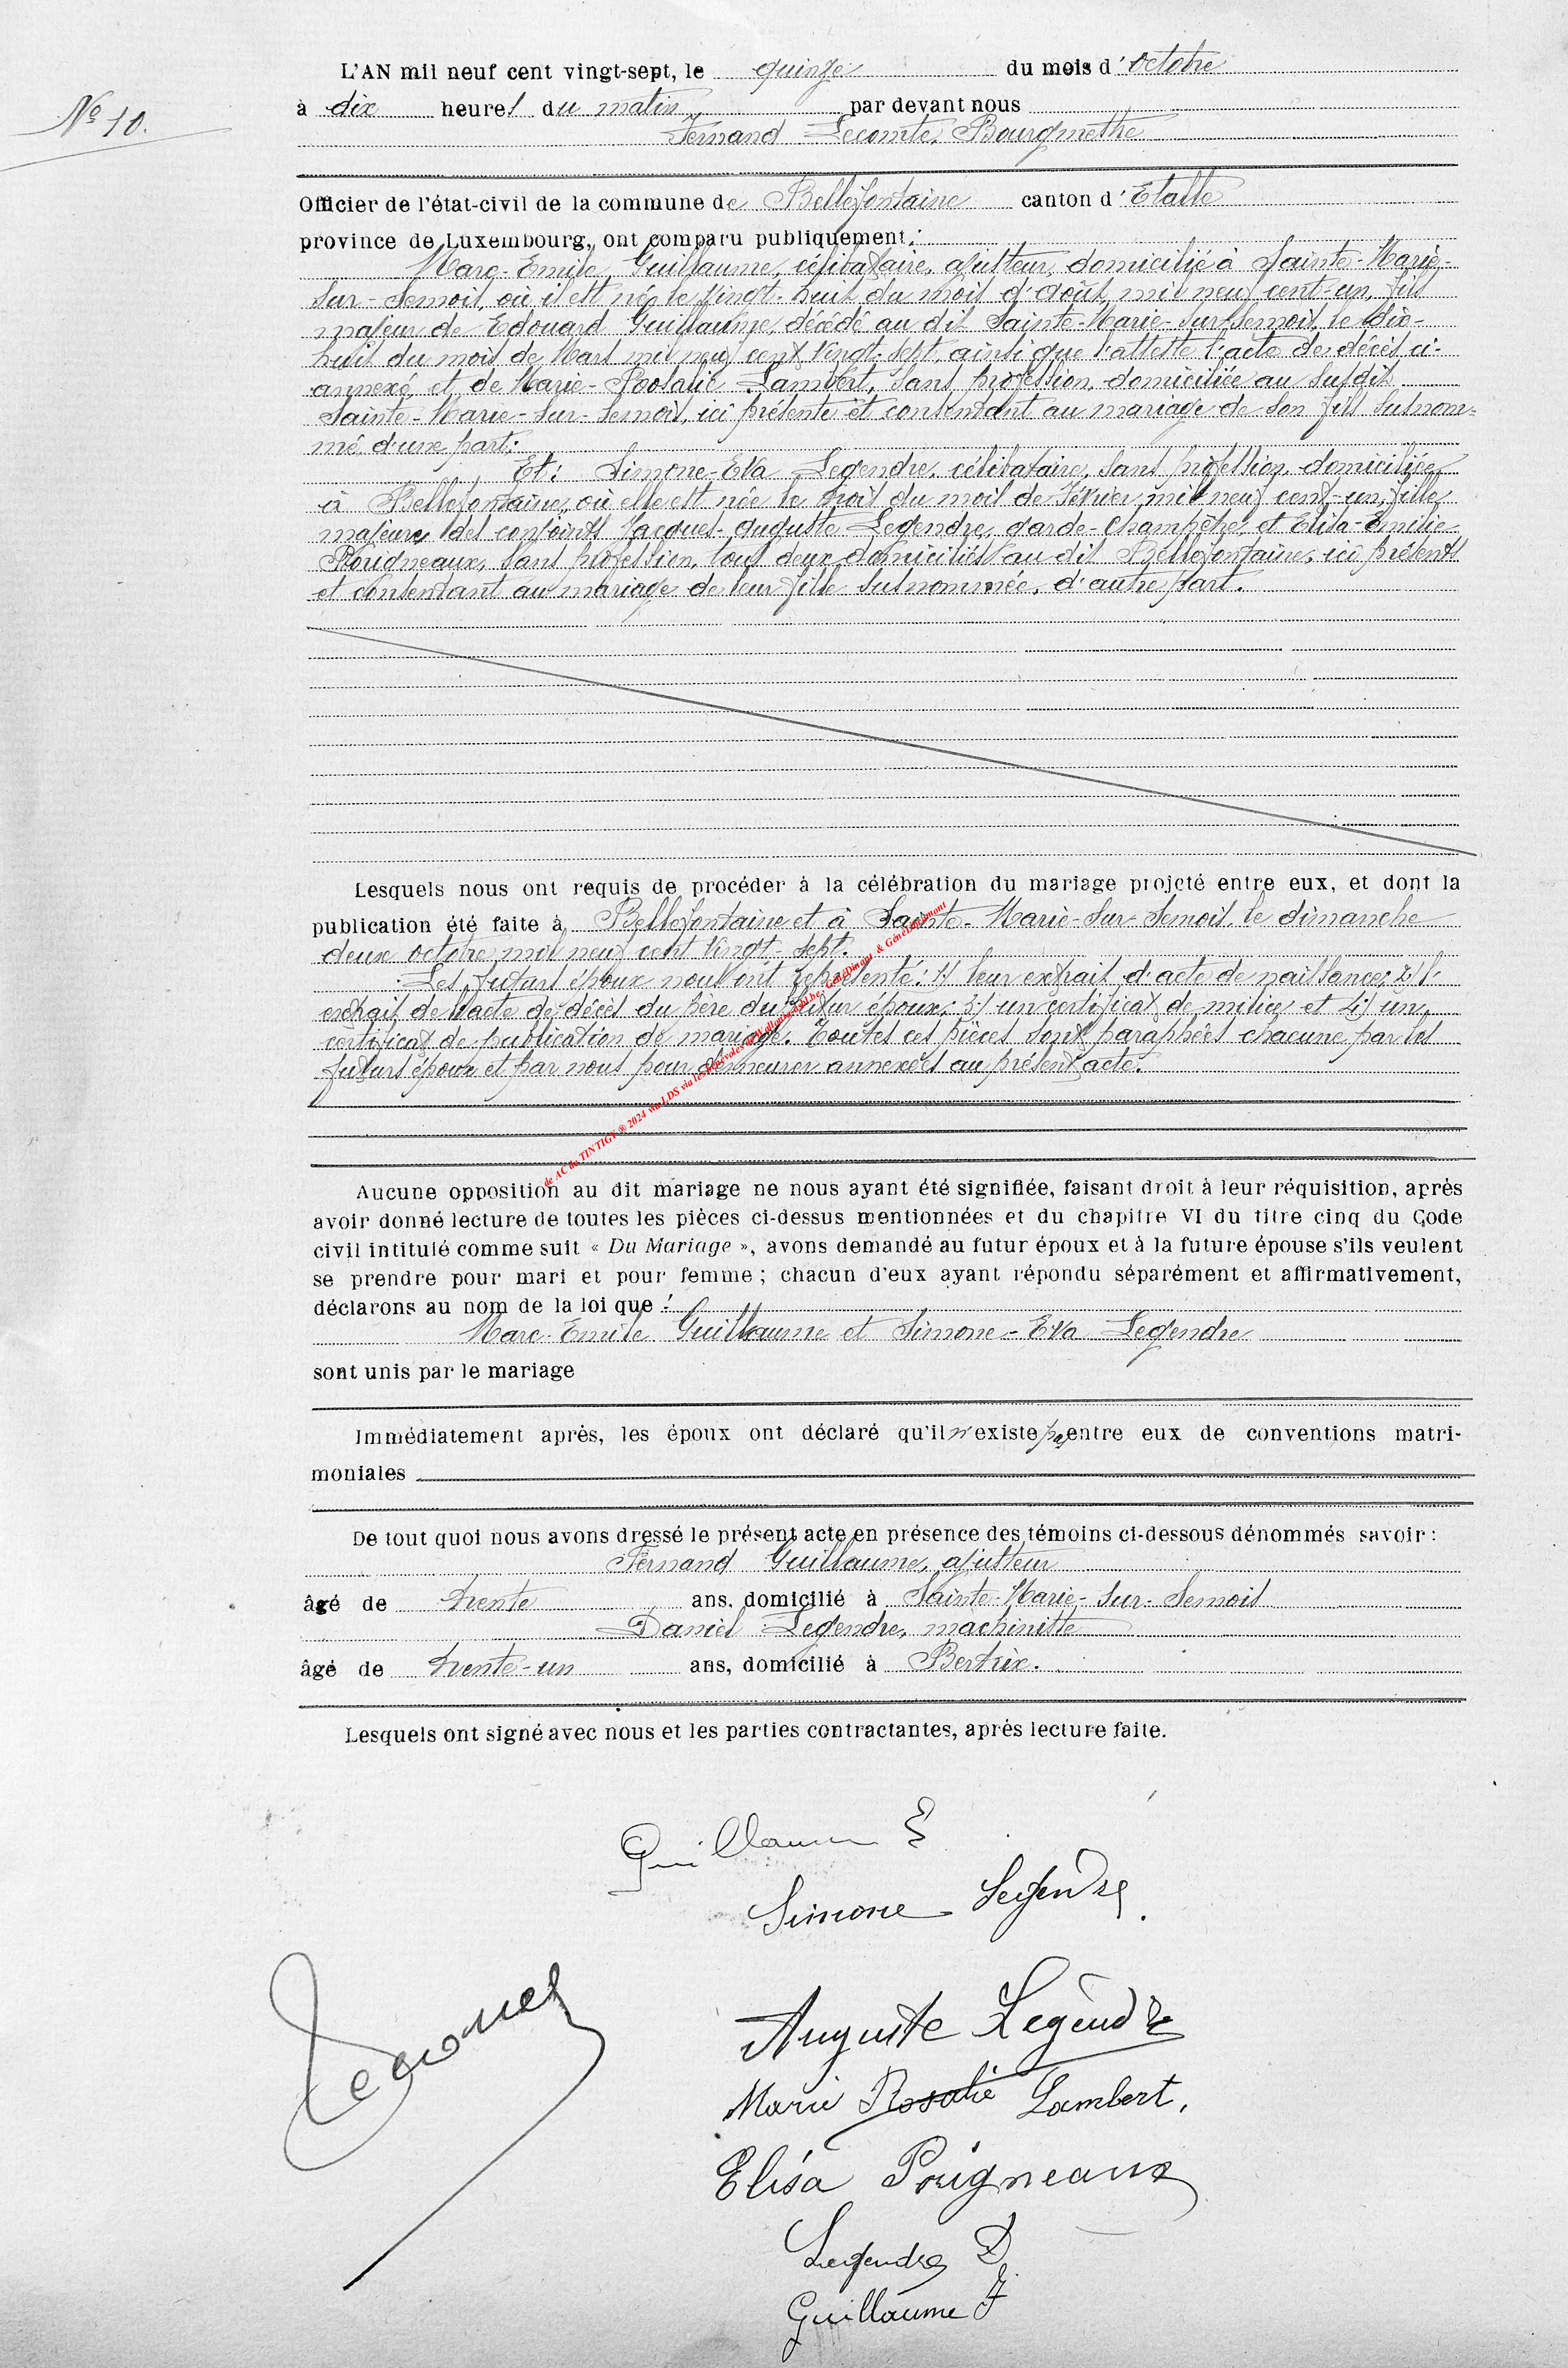 L'AN mil neuf cent vingt-sept, le quinze du mois d'Octobre
à dix heures du matin par devant nous
N° 10.
Fernand Lecomte, Bourgmestre
Officier de l'état-civil de la commune de Bellefontaine canton d'Etalle
province de Luxembourg, ont comparu publiquement :
Marc-Emile Guillaume, célibataire, ajusteur, domicilié à Sainte-Marie-
sur-Semois, où il est né le vingt-huit du mois d'août mil neuf cent-un, fils
majeur de Edouard Guillaume, décédé au dit Sainte-Marie-sur-Semois, le dix-
huit du mois de Mars mil neuf cent vingt-sept, ainsi que l'atteste l'acte de décès ci-
annexé, et de Marie-Rosalie Lambert, sans profession, domiciliée au susdit
Sainte-Marie-sur-Semois, ici présente et consentant au mariage de son fils susnom-
mé d'une part;
Et: Simone-Eva Legendre, célibataire, sans profession, domiciliée
à Bellefontaine, où elle est née le trois du mois de Février mil neuf cent-un, fille
majeure des conjoints Jacques-Auguste Legendre, garde-champêtre, et Elisa-Emilie
Poigneaux, sans profession, tous deux domiciliés au dit Bellefontaine, ici présents
et consentant au mariage de leur fille susnommée, d'autre part.
Lesquels nous ont requis de procéder à la célébration du mariage projeté entre eux, et dont la
publication été faite à Bellefontaine et à Sainte-Marie-sur-Semois, le dimanche
deux octobre mil neuf cent vingt-sept.
Les futurs époux nous ont représenté: 1) leur extrait d'acte de naissance; 2) l'
extrait de l'acte de décès du père du futur époux; 3) un certificat de milice et 4) un
certificat de publication de mariage. Toutes ces pièces sont paraphées chacune par les
futurs époux et par nous pour demeurer annexées au présent acte.
de AC de TINTIGNY ® 2024 via LDS via les bénévoles de
Aucune opposition au dit mariage ne nous ayant été signifiée, faisant droit à leur réquisition, après
avoir donné lecture de toutes les pièces ci-dessus mentionnées et du chapitre VI du titre cinq du Code
civil intitulé comme suit « Du Mariage », avons demandé au futur époux et à la future épouse s'ils veulent
se prendre pour mari et pour femme ; chacun d'eux ayant répondu séparément et affirmativement,
déclarons au nom de la loi que :
Marc-Emile Guillaume et Simone-Eva Legendre
sont unis par le mariage
Immédiatement après, les époux ont déclaré qu'il n'existe pas entre eux de conventions matri-
moniales
De tout quoi nous avons dressé le présent acte en présence des témoins ci-dessous dénommés savoir :
Fernand Guillaume, ajusteur
âgé de trente ans, domicilié à Sainte-Marie-sur-Semois
Daniel Legendre, machiniste
âgé de trente-un ans, domicilié à Bertrix.
Lesquels ont signé avec nous et les parties contractantes, après lecture faite.
Guillaume E
Simone Legendre.
Auguste Legendre
Marie Rosalie Lambert,
Elisa Poigneaux
Legendre D.
Guillaume F